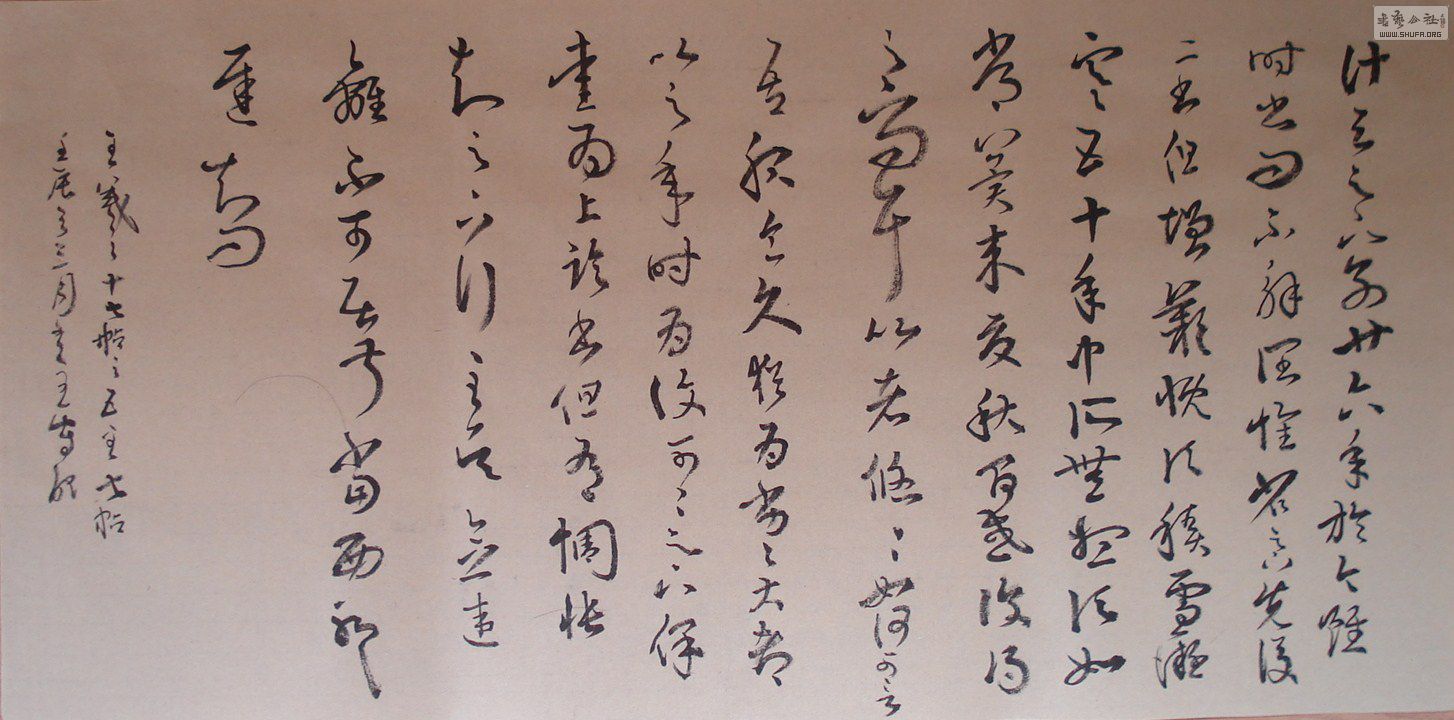 計與足下別廿六年於今雖
時書問不解闊懷省足下先後
二書但增歎慨頃積雪凝
寒五十年中所無想頃如
常冀來夏秋間或復得
足下問耳比者悠悠如何可言
吾服食久猶為劣劣大都
比之年時為復可可足下保
愛為上臨書但有惆悵
知足下行至吳念違
離不可居叔當西耶
遲知問
王羲之十七帖之五至七帖
三月
書藝公社
WWW.SHUFA.ORG